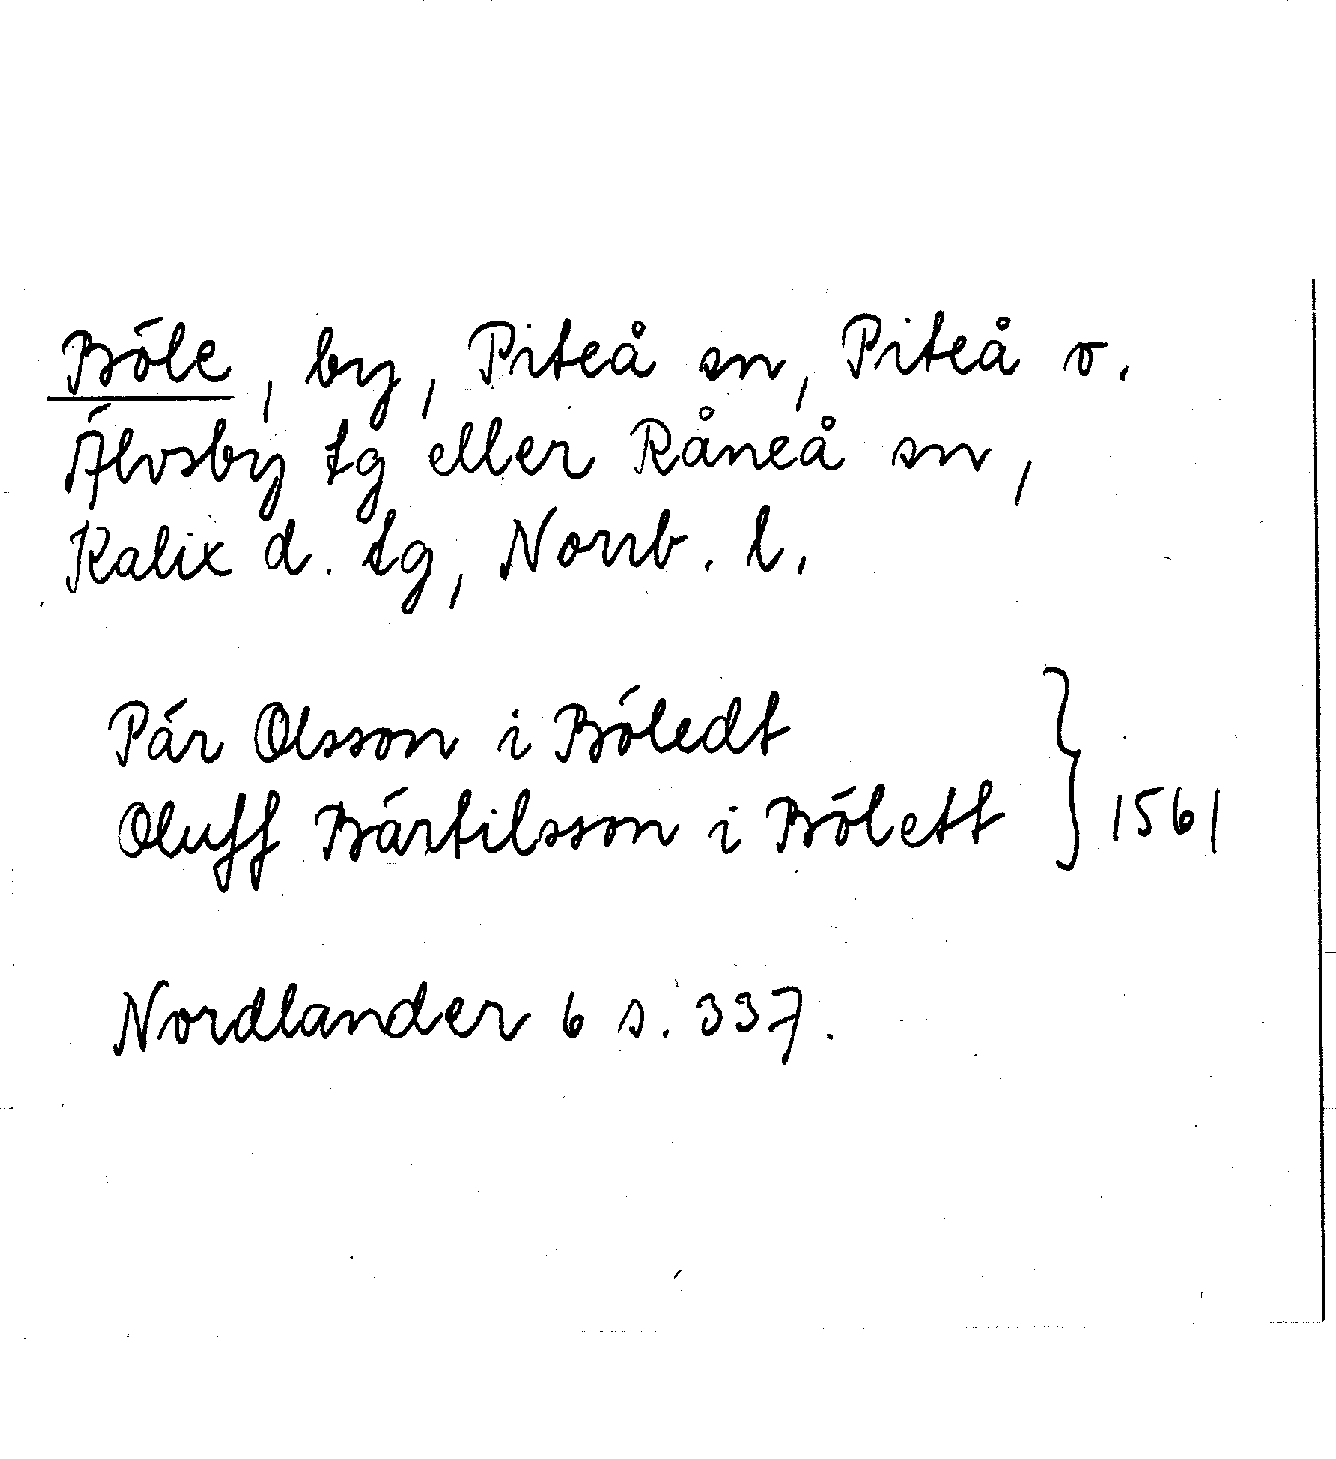 Böle, by, Piteå sn, Piteå o.
Älvsby tg eller Råneå sn,
Kalix d. tg, Norrb. l.
Pär Olsson i Böledt
Oluff Bärtilsson i Bölett } 1561
Nordlander 6 s. 337.